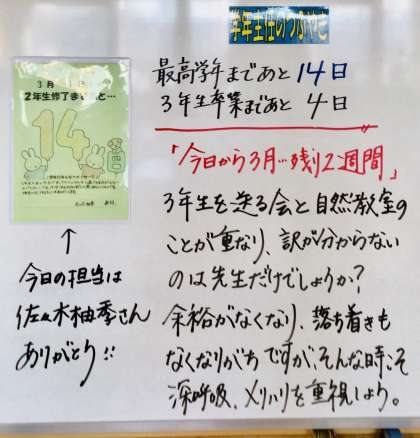 学年主任のつぶやき
最高学年まであと 14日
3年生卒業まであと 4日
「今日から3月…残り2週間」
3年生を送る会と自然教室の
ことが重なり、訳が分からない
のは先生だけでしょうか?
余裕がなくなり、落ち着きも
なくなりがちですが、そんな時こそ
深呼吸、メリハリを重視しよう。
3月
2年生修了まであと…
14
↑
今日の担当は
佐々木柚季さん
ありがとう!!